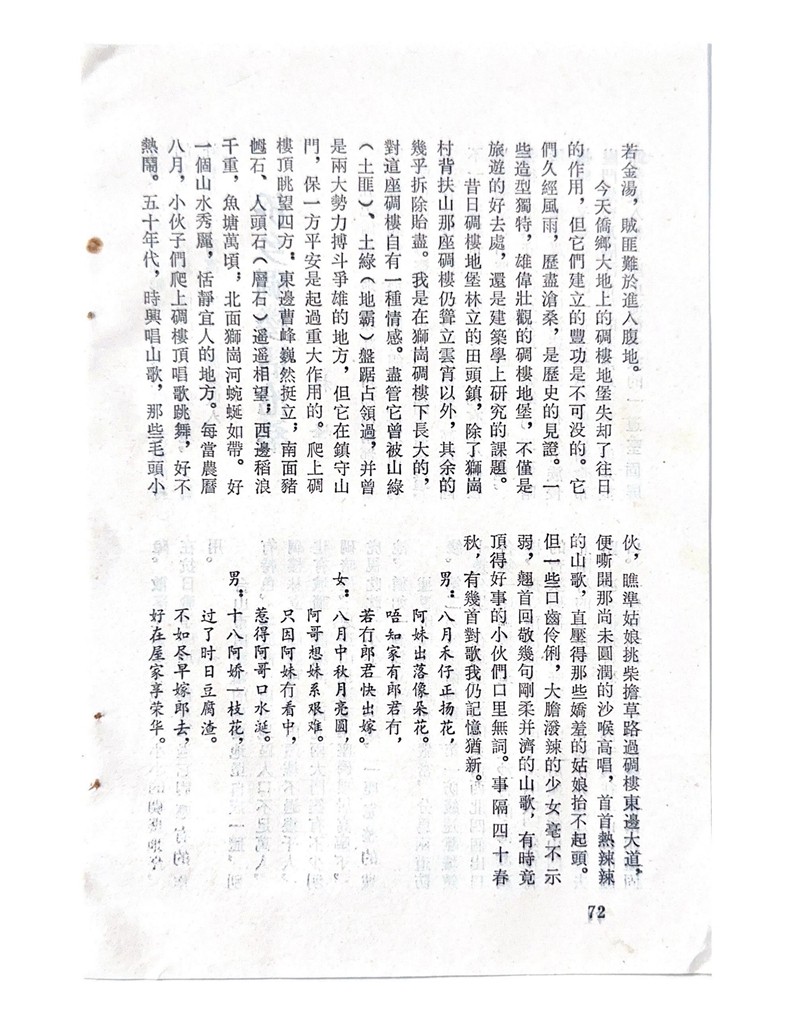 若金湯，賊匪難於進入腹地。
今天僑鄉大地上的碉樓地堡失却了往日
的作用，但它們建立的豐功是不可没的。它
們久經風雨，歷盡滄桑，是歷史的見證。一
些造型獨特，雄偉壯觀的碉樓地堡，不僅是
旅遊的好去處，還是建築學上研究的課題。
昔日碉樓地堡林立的田頭鎮，除了獅崗
村背扶山那座碉樓仍聳立雲宵以外，其余的
幾乎拆除殆盡。我是在獅崗碉樓下長大的，
對這座碉樓自有一種情感。盡管它曾被山緑
（土匪）、土緑（地霸）盤踞占領過，并曾
是兩大勢力搏斗爭雄的地方，但它在鎮守山
門，保一方平安是起過重大作用的。爬上碉
樓頂眺望四方：東邊曹峰巍然挺立；南面豬
乸石、人頭石（層石）遥遥相望；西邊稻浪
千重，魚塘萬頃；北面獅崗河蜿蜒如帶。好
一個山水秀麗，恬靜宜人的地方。每當農曆
八月，小伙子們爬上碉樓頂唱歌跳舞，好不
熱鬧。五十年代，時興唱山歌，那些毛頭小
伙，瞧準姑娘挑柴擔草路過碉樓東邊大道，
便嘶開那尚未圓潤的沙喉高唱，首首熱辣辣
的山歌，直壓得那些嬌羞的姑娘抬不起頭。
但一些口齒伶俐，大膽潑辣的少女毫不示
弱，翹首回敬幾句剛柔并濟的山歌，有時竟
頂得好事的小伙們口里無詞。事隔四十春
秋，有幾首對歌我仍記憶猶新。
男：八月禾仔正扬花，
阿妹出落像朵花。
唔知家有郎君冇，
若冇郎君快出嫁。
女：八月中秋月亮圆，
阿哥想妹系艰难。
只因阿妹冇看中，
惹得阿哥口水涎。
男：十八阿娇一枝花，
过了时日豆腐渣。
不如尽早嫁郎去，
好在屋家享荣华。
72